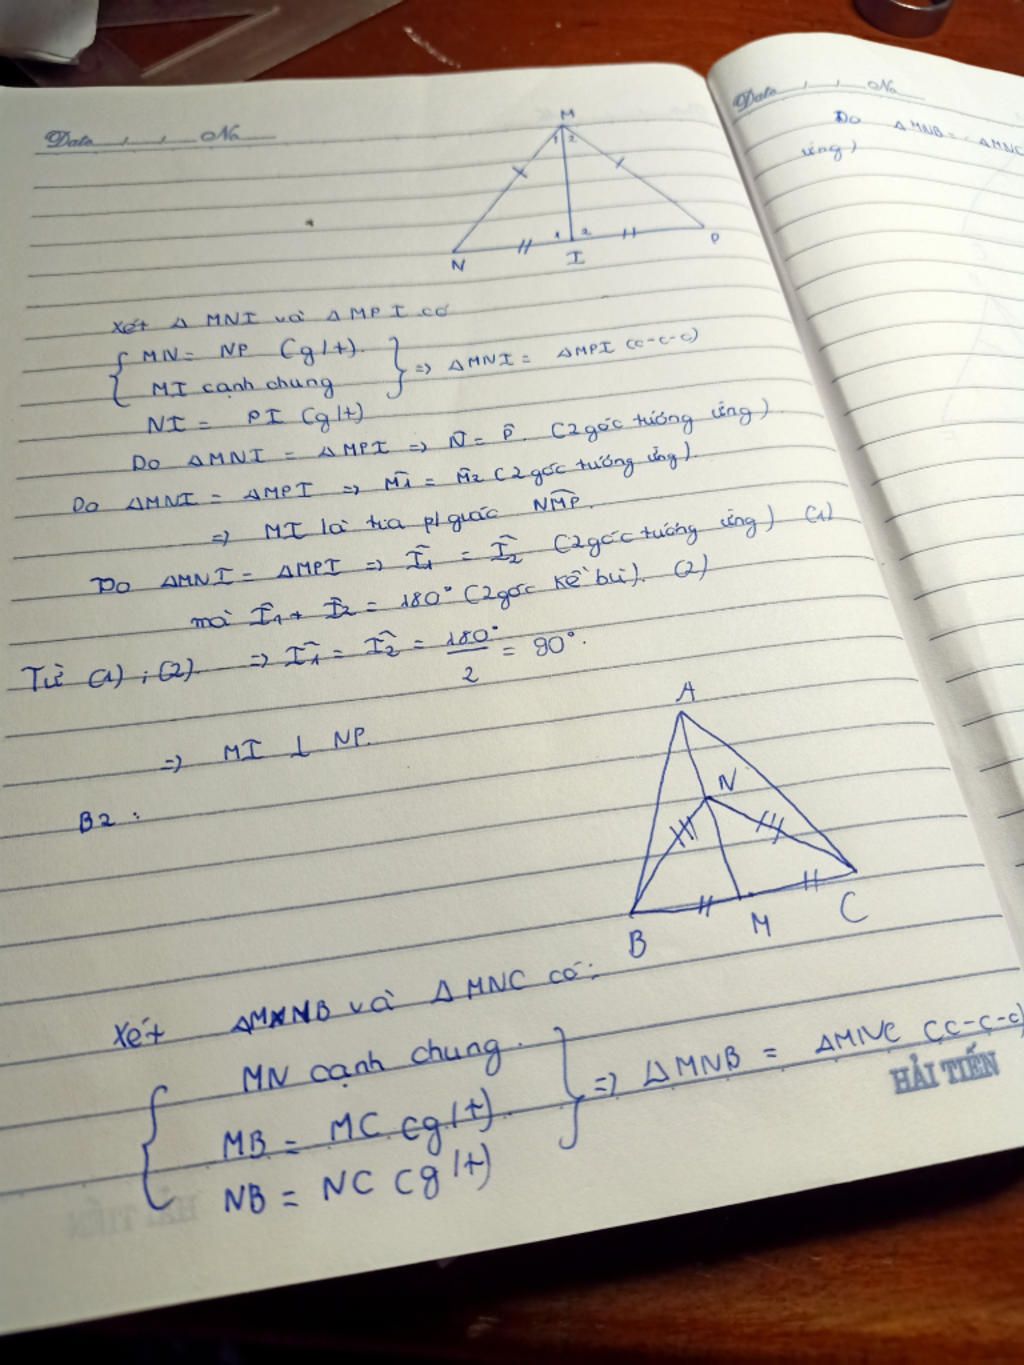 Date / / No
M
1 2
N
1 2
I
P
Xét Δ MNI và Δ MPI có
MN = NP (g/t).
MI cạnh chung
NI = PI (g/t)
=> ΔMNI = ΔMPI (c-c-c)
Do ΔMNI = ΔMPI => N̂ = P̂. (2 góc tương ứng)
Do ΔMNI = ΔMPI => M̂1 = M̂2 (2 góc tương ứng).
=> MI là tia p/giác NMP.
Do ΔMNI = ΔMPI => Î1 = Î2 (2 góc tương ứng) (1)
mà Î1 + Î2 = 180° (2 góc kề bù). (2)
Từ (1) ; (2) => Î1 = Î2 = 180°/2 = 90°.
=> MI ⊥ NP.
B2 :
A
N
B
M
C
Xét ΔMNB và Δ MNC có:
MN cạnh chung.
MB = MC (g/t).
NB = NC (g/t)
=> ΔMNB = ΔMNC (c-c-c)
HẢI TIẾN
Date / / No
Do ΔMNB = ΔMNC
ứng)